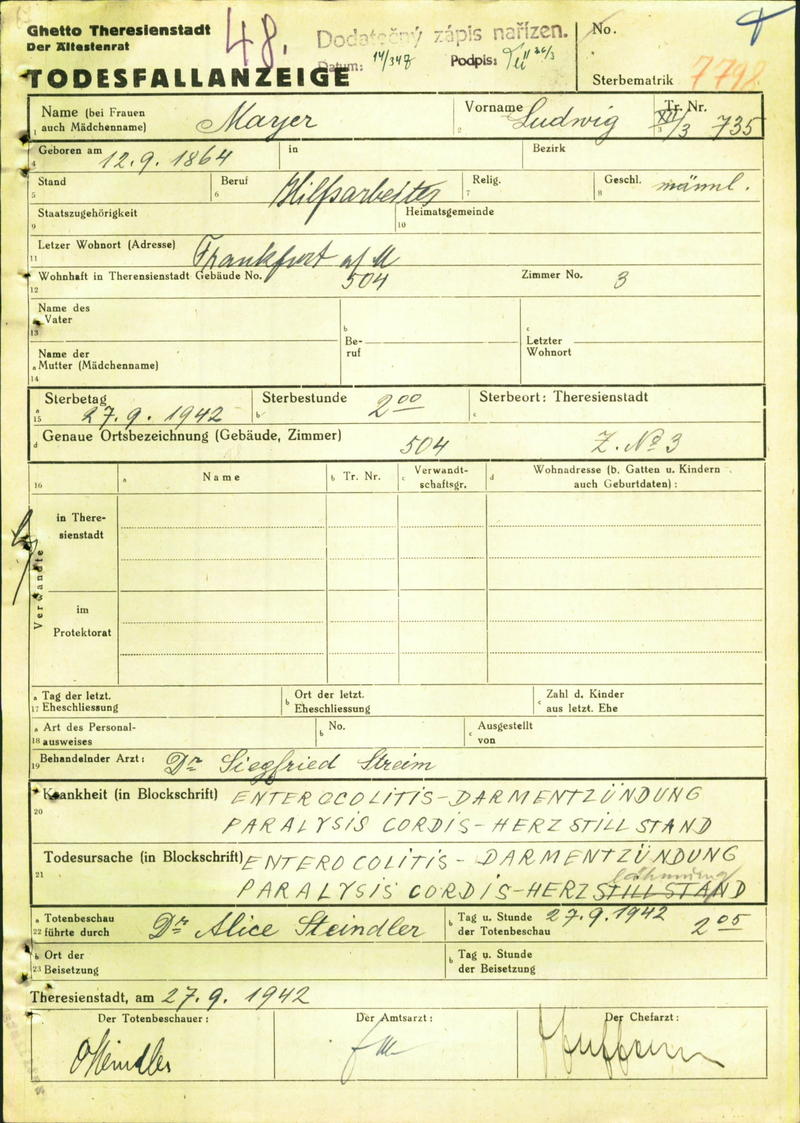 Ghetto Theresienstadt
Der Ältestenrat
48.
Dodatečný zápis nařízen.
Datum: 14/348 Podpis:
No.
TODESFALLANZEIGE
Sterbematrik 7792
1 Name (bei Frauen auch Mädchenname) Mayer
2 Vorname Ludwig
3 Tr. Nr. XII/3 735
4 Geboren am 12.9.1864 in Bezirk
5 Stand 6 Beruf Hilfsarbeiter 7 Relig. 8 Geschl. männl.
9 Staatszugehörigkeit 10 Heimatsgemeinde
11 Letzer Wohnort (Adresse) Frankfurt a/M
12 Wohnhaft in Theresienstadt Gebäude No. 504 Zimmer No. 3
13 a Name des Vater
b Beruf
c Letzter Wohnort
14 a Name der Mutter (Mädchenname)
15 a Sterbetag 27.9.1942 b Sterbestunde 2 00 c Sterbeort: Theresienstadt
d Genaue Ortsbezeichnung (Gebäude, Zimmer) 504 Z. No 3
16 a Name b Tr. Nr. c Verwandtschaftsgr. d Wohnadresse (b. Gatten u. Kindern auch Geburtdaten):
Verwandte
in Theresienstadt
im Protektorat
17 a Tag der letzt. Eheschliessung b Ort der letzt. Eheschliessung c Zahl d. Kinder aus letzt. Ehe
18 a Art des Personalausweises b No. c Ausgestellt von
19 Behandelnder Arzt: Dr Siegfried Streim
20 Krankheit (in Blockschrift) ENTEROCOLITIS-DARMENTZÜNDUNG
PARALYSIS CORDIS-HERZSTILLSTAND
21 Todesursache (in Blockschrift) ENTEROCOLITIS-DARMENTZÜNDUNG
lähmung
PARALYSIS CORDIS-HERZSTILLSTAND
22 a Totenbeschau führte durch Dr Alice Steindler b Tag u. Stunde der Totenbeschau 27.9.1942 2 05
23 b Ort der Beisetzung b Tag u. Stunde der Beisetzung
Theresienstadt, am 27.9.1942
Der Totenbeschauer: Der Amtsarzt: Der Chefarzt:
Steindler